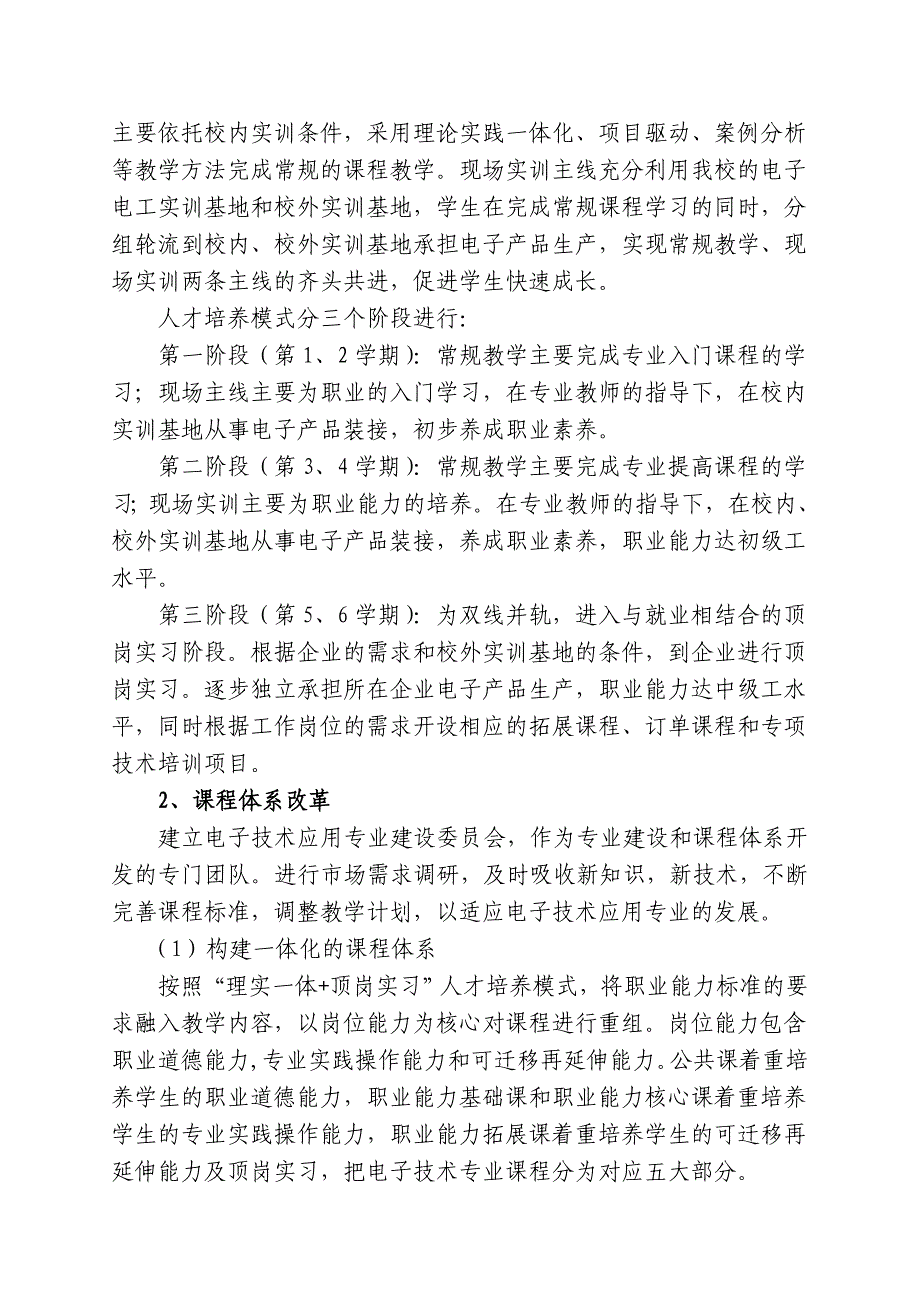 主要依托校内实训条件，采用理论实践一体化、项目驱动、案例分析
等教学方法完成常规的课程教学。现场实训主线充分利用我校的电子
电工实训基地和校外实训基地，学生在完成常规课程学习的同时，分
组轮流到校内、校外实训基地承担电子产品生产，实现常规教学、现
场实训两条主线的齐头共进，促进学生快速成长。
人才培养模式分三个阶段进行：
第一阶段（第1、2学期）：常规教学主要完成专业入门课程的学
习；现场主线主要为职业的入门学习，在专业教师的指导下，在校内
实训基地从事电子产品装接，初步养成职业素养。
第二阶段（第3、4学期）：常规教学主要完成专业提高课程的学
习；现场实训主要为职业能力的培养。在专业教师的指导下，在校内、
校外实训基地从事电子产品装接，养成职业素养，职业能力达初级工
水平。
第三阶段（第5、6学期）：为双线并轨，进入与就业相结合的顶
岗实习阶段。根据企业的需求和校外实训基地的条件，到企业进行顶
岗实习。逐步独立承担所在企业电子产品生产，职业能力达中级工水
平，同时根据工作岗位的需求开设相应的拓展课程、订单课程和专项
技术培训项目。
2、课程体系改革
建立电子技术应用专业建设委员会，作为专业建设和课程体系开
发的专门团队。进行市场需求调研，及时吸收新知识，新技术，不断
完善课程标准，调整教学计划，以适应电子技术应用专业的发展。
（1）构建一体化的课程体系
按照“理实一体+顶岗实习”人才培养模式，将职业能力标准的要
求融入教学内容，以岗位能力为核心对课程进行重组。岗位能力包含
职业道德能力，专业实践操作能力和可迁移再延伸能力。公共课着重培
养学生的职业道德能力，职业能力基础课和职业能力核心课着重培养
学生的专业实践操作能力，职业能力拓展课着重培养学生的可迁移再
延伸能力及顶岗实习，把电子技术专业课程分为对应五大部分。